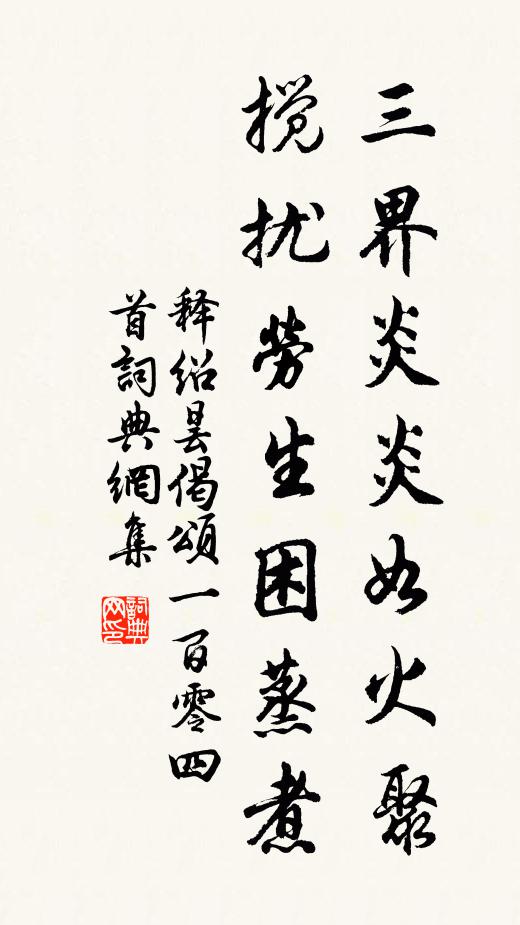 三界炎炎如火聚
搅扰劳生困蒸煮
释绍昙偈颂一百零四
首詞典網集
詞典
网印